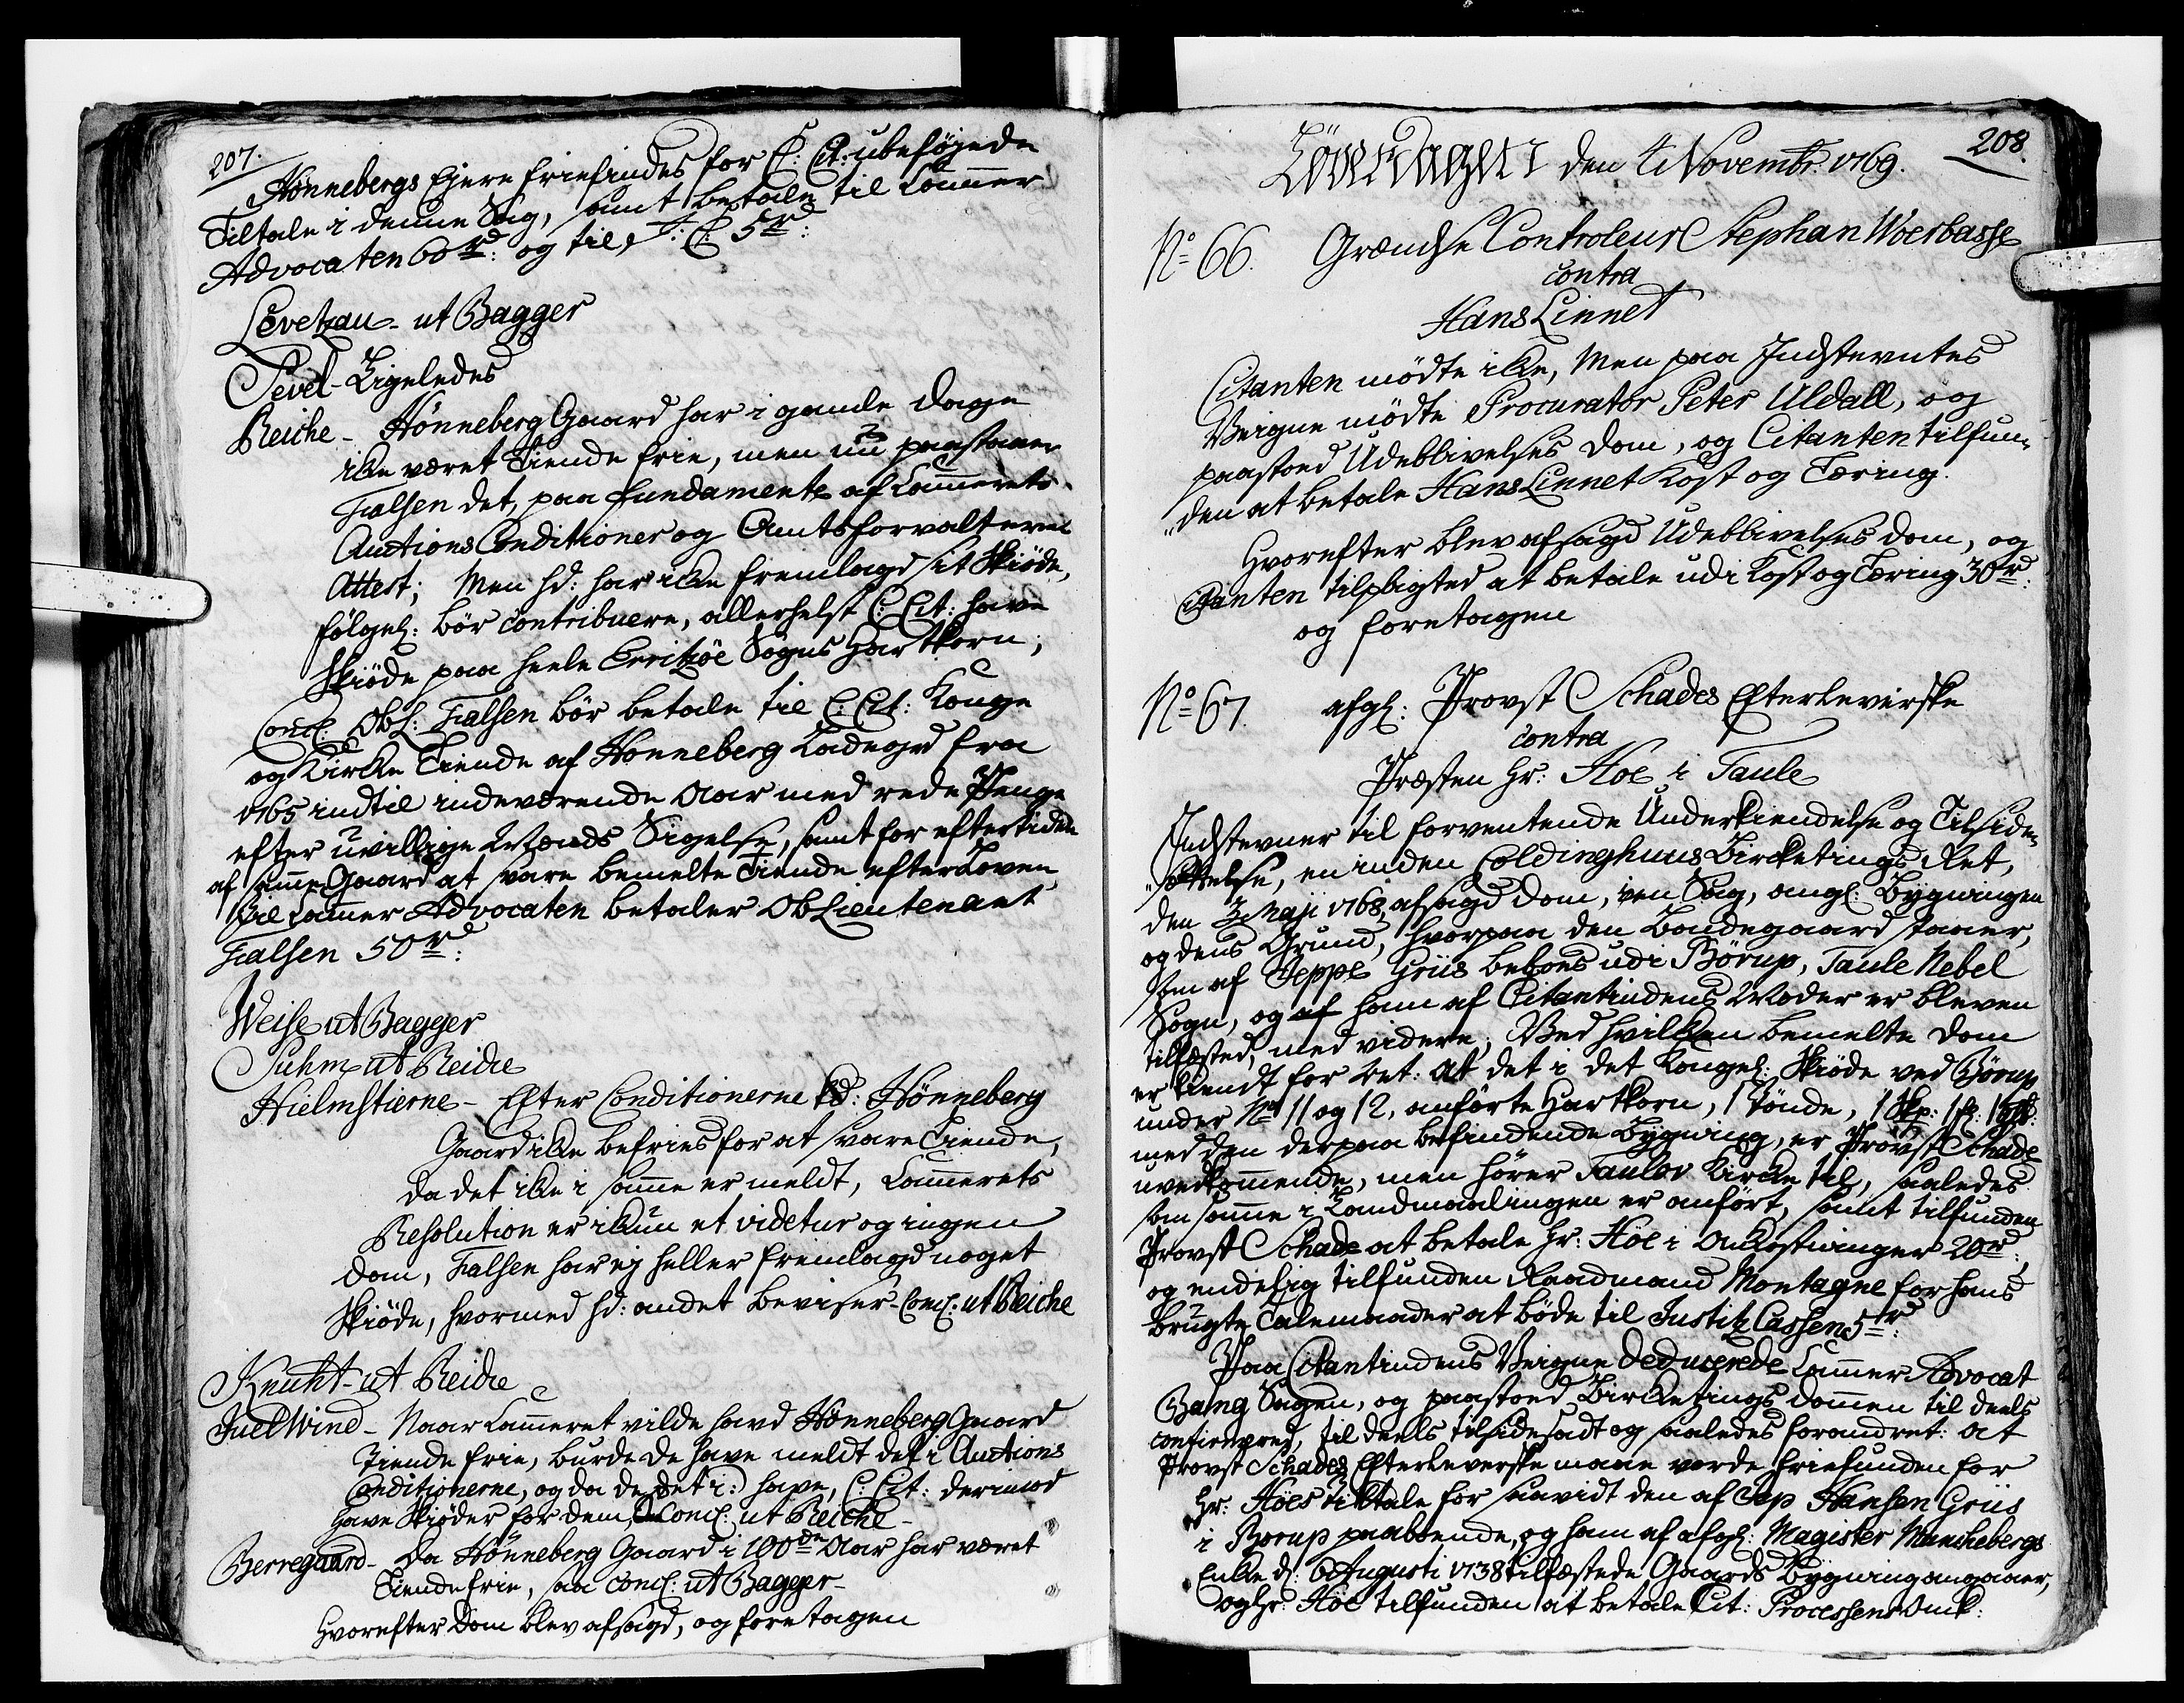 207.
Hönnebergs Ejere friefindes for C: Cit: ubeföjede
Tiltale i denne Sag, samt betale til Cammer
Advocaten 60 rd: og til J: C: 5 rd:
Levetzau - ut Bagger
Sevel - Ligeledes
Reiche - Hönneberg Gaard har i gamle dage
icke været Tiende frie, men nu paastaaer
Falsen det, paa fundamente af Cammerets
Auctions Conditioner og Amtsforvalterens
Attest; Men hd: har icke fremlagd sit Skiöde,
fölgel: bör contribuere, allerhelst C: Cit: have
Skiöde paa heele Erritzöe Sogns Hartkorn;
Concl: Obl: Falsen bör betale til C: Cit: Konge
og Kircke Tiende af Honneberg Ladegrd fra
1765 indtil indeværende Aar med rede Penge
efter uvillige Mænds Sigelse, samt for eftertiden
af samme Gaard at svare bemelte Tiende efter Loven
Til Cammer Advocaten betaler ObLieutenant
Falsen 50 rd:
Weise ut Bagger
Suhm ut Reiche
Hielmstierne - Efter Conditionerne kd: Hönneberg
Gaard icke befries for at svare Tiende,
da det icke i samme er meldt, Cammerets
Resolution er ickun et videtur og ingen
dom, Falsen har ej heller fremlagd noget
Skiöde, hvormed hd: andet beviser - Concl: ut Reiche
Knuht - ut Reiche
Juel Wind - Naar Cammeret vilde havd Hönneberg Gaard
Tiende frie, burde de have meldt det i Auctions
Conditionerne, og da de det i: have, C: Cit: derimod
have Skiöder for dem, Concl: ut Reiche -
Berregaard - Da Hönneberg Gaard i 100de Aar har været
Tiende frie, saa concl: ut Bagger -
Hvorefter dom blev afsagd, og foretagen
208.
Löverdagen den 4 Novembr: 1769.
No 66. Grændse Controleur Stephan Woerbasse
contra
Hans Linnet
Citanten mödte icke, Men paa Indstevntes
Veigne mödte Procurator Peter Uldall, og
paastod Udeblivelses dom, og Citanten tilfun-
"den at betale Hans Linnet Kost og Tæring.
Hvorefter blev afsagd Udeblivelses dom, og
Citanten tilpligted at betale udi Kost og Tæring 30 rd:
og foretagen
No 67. afgl: Provst Schades Efterleverske
contra
Præsten Hr: Höe i Taule
Indstevner til forventende Underkiendelse og Tilside-
"sættelse, en inden Coldinghuus Bircketings Ret,
den 3 Maji 1768, afsagd dom, i en Sag, angl: Bygningen
og dens Grund, hvorpaa den Bondegaard staaer,
som af Jeppe Griis beboes udi Börup, Taule Nebel
Sogn, og af ham af Citantindens Moder er bleven
tilfæsted, med videre; Ved hvilken bemelte dom
er kiendt for Ret: At det i det Kongel: Skiöde ved Börup
under No 11 og 12, anförte Hartkorn, 1 Tönde, 1 Skp: 1 fj: 1 Alb:
med den derpaa befindende Bygning, er Provst Schade
uvedkommende, men hörer Taulov Kircke til, saaledes
som samme i Landmaalingen er anfört, samt tilfunden
Provst Schade at betale Hr: Höe i Omkostninger 20 rd:,
og endelig tilfunden Raadmand Montagne for hans
brugte Talemaader at böde til Justitz Cassen 5 rd:
Paa Citantindens Veigne deducerede Cammer Advocat
Bang Sagen, og paastod Bircketings dommen til deels
confirmered, til deels tilsidesadt og saaledes forandret: at
Provst Schades Efterleverske maae vorde friefunden for
Hr: Höes tiltale for saavidt den af Jep Hansen Griis
i Börup paaboende, og ham af afgl: Magister Munchebergs
Encke d: 6 Augusti 1738 tilfæstede Gaards Bygning angaaer,
og Hr: Höe tilfunden at betale Cit: Processens Omk: